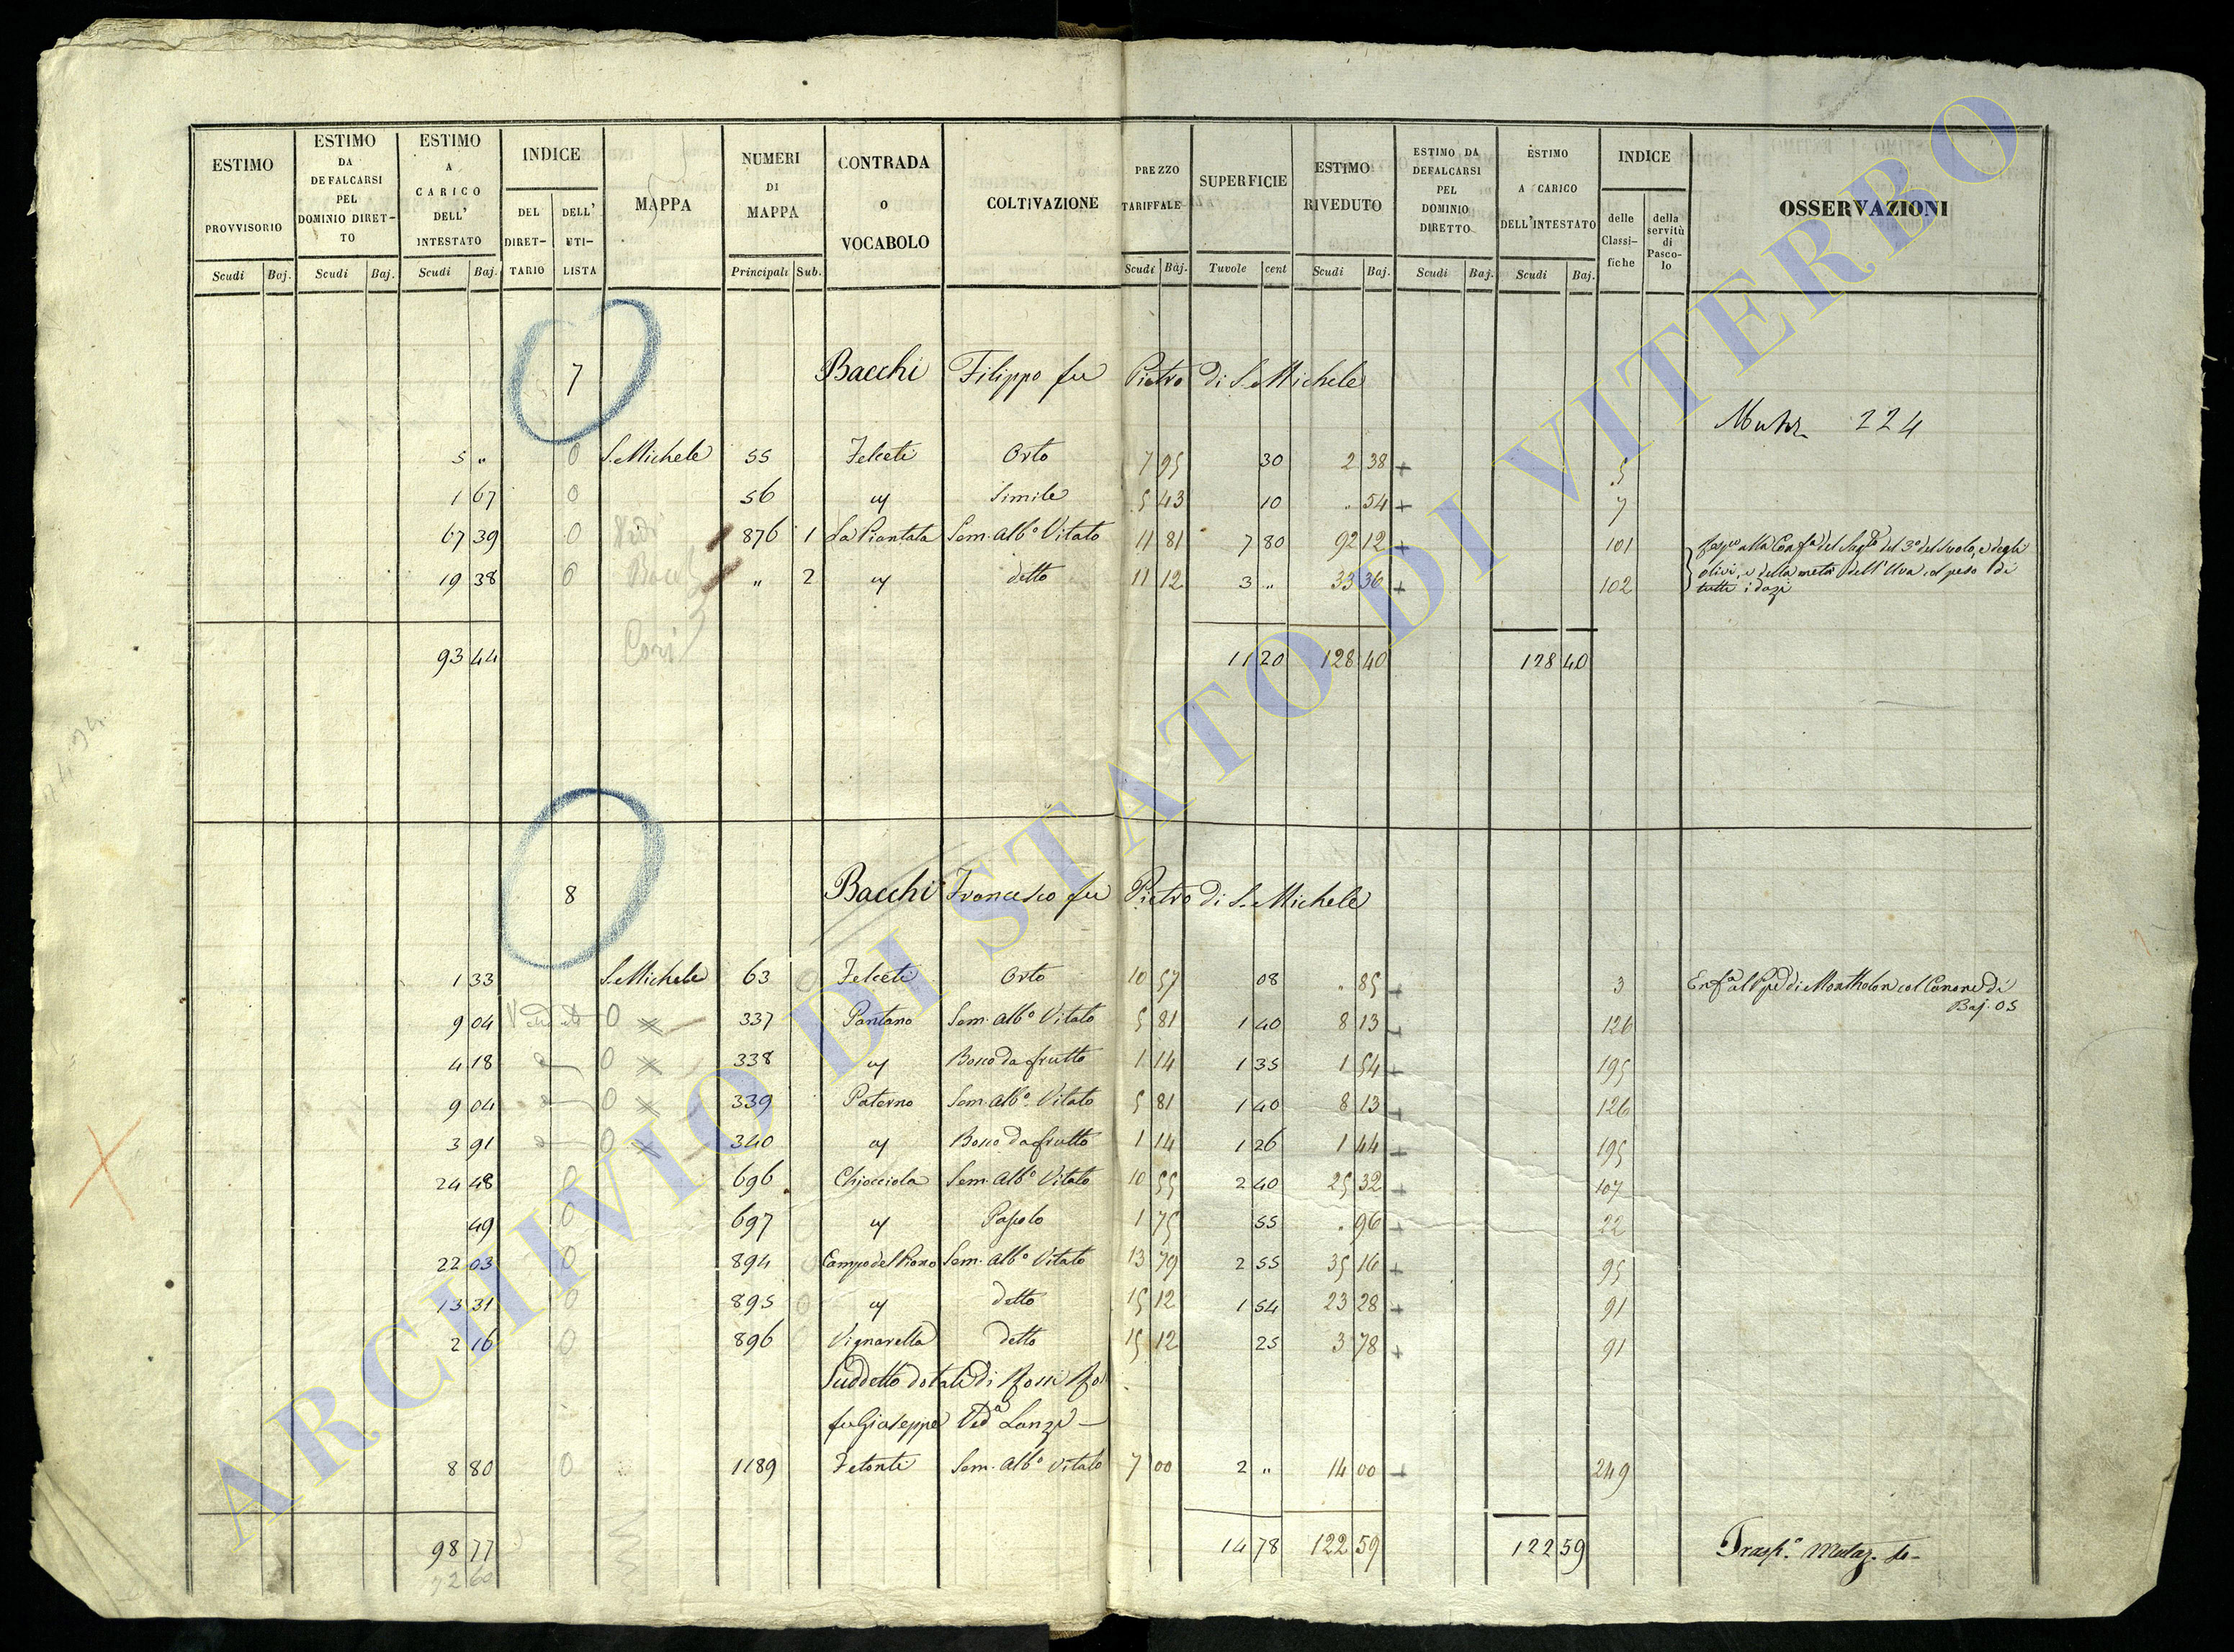 ESTIMO PROVVISORIO Scudi Baj.
ESTIMO DA DEFALCARSI PEL DOMINIO DIRET-TO Scudi Baj.
ESTIMO A CARICO DELL' INTESTATO Scudi Baj.
INDICE DEL DIRET-TARIO DELL' UTI-LISTA
MAPPA
NUMERI DI MAPPA Principali Sub.
CONTRADA o VOCABOLO
COLTIVAZIONE
PREZZO TARIFFALE Scudi Baj.
SUPERFICIE Tavole cent
ESTIMO RIVEDUTO Scudi Baj.
ESTIMO DA DEFALCARSI PEL DOMINIO DIRETTO Scudi Baj.
ESTIMO A CARICO DELL'INTESTATO Scudi Baj.
INDICE delle Classi-fiche della servitù di Pasco-lo
OSSERVAZIONI
7 Bacchi Filippo fu Pietro di S. Michele
224
5 " 0 S. Michele 55 Felceti Orto 7 95 30 2 38 + 5
1 67 0 56 " Simile 5 43 10 . 54 + 7
67 39 0 876 1 La Piantata Sem. Alb.o Vitato 11 81 7 80 92 12 + 101
19 38 0 " 2 " detto 11 12 3 " 33 36 + 102
olivi, e della metà dell'Uva col peso di
tutti i dazi
93 44 11 20 128 40 128 40
8 Bacchi Francesco fu Pietro di S. Michele
1 33 S. Michele 63 0 Felceti Orto 10 57 08 . 85 + 3
Baj. 05
9 04 0 337 Pantano Sem. Alb.o Vitato 5 81 1 40 8 13 + 126
4 18 0 338 " Bosco da frutto 1 14 1 35 1 54 + 195
9 04 0 339 Paterno Sem. Alb.o Vitato 5 81 1 40 8 13 + 126
3 91 0 340 " Bosco da frutto 1 14 1 26 1 44 + 195
24 48 0 696 Chiocciola Sem. Alb.o Vitato 10 55 2 40 25 32 + 107
49 0 697 " Pascolo 1 75 55 . 96 + 22
22 03 0 894 Campo del Piano Sem. Alb.o Vitato 13 79 2 55 35 16 + 95
13 31 0 895 0 " detto 15 12 1 54 23 28 + 91
2 16 0 896 Vignarella detto 15 12 25 3 78 + 91
Suddetto dotali di Rossi
fu Giuseppe Ved.a Lanzi
8 80 0 1189 Fetonti Sem. Alb.o Vitato 7 00 2 " 14 00 + 249
98 77 14 78 122 59 122 59
72 60
ARCHIVIO DI STATO DI VITERBO